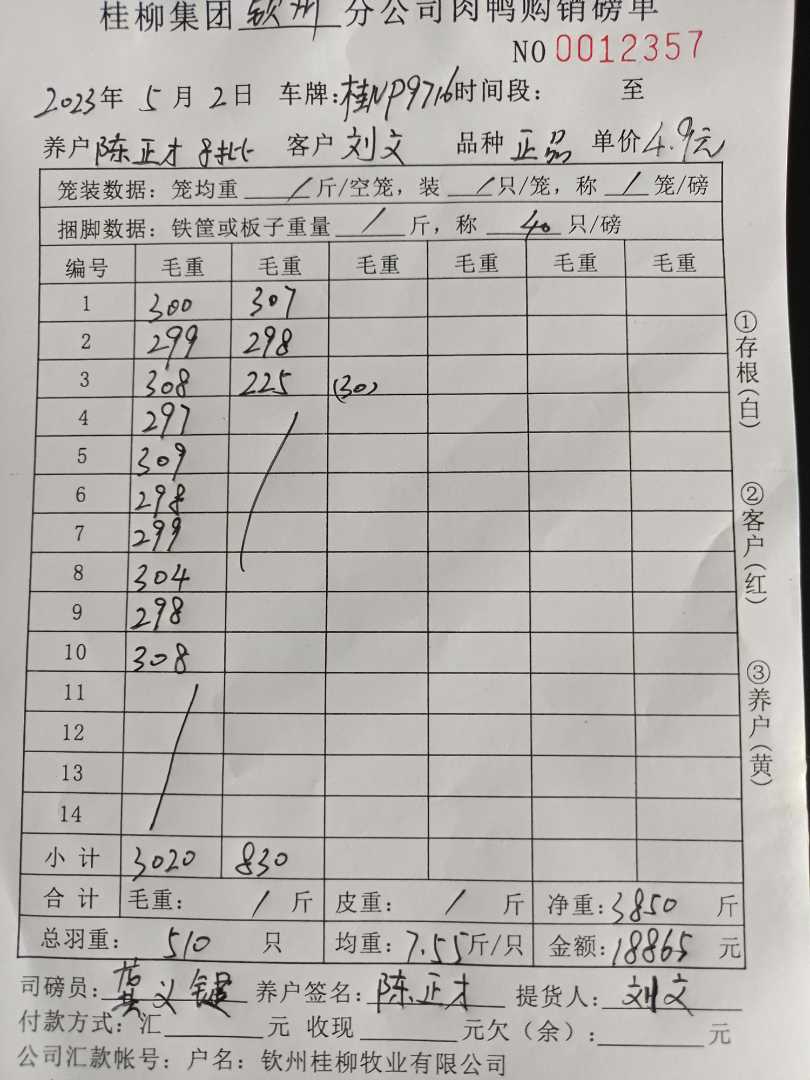 桂柳集团 钦州 分公司肉鸭购销磅单
NO 0012357
2023年 5月 2日 车牌:桂NP9716时间段: 至
养户 陈正才 8批 客户 刘文 品种 正品 单价 4.9元
笼装数据: 笼均重 / 斤/空笼, 装 / 只/笼, 称 / 笼/磅
捆脚数据: 铁筐或板子重量 / 斤, 称 40 只/磅
编号 毛重 毛重 毛重 毛重 毛重 毛重
1 300 307
2 299 298
3 308 225 (30)
4 297
5 309
6 298
7 299
8 304
9 298
10 308
11
12
13
14
小计 3020 830
合计 毛重: / 斤 皮重: / 斤 净重:3850 斤
总羽重: 510 只 均重:7.55斤/只 金额:18865 元
司磅员: 黄义键 养户签名: 陈正才 提货人: 刘文
付款方式: 汇 元 收现 元欠(余): 元
公司汇款帐号: 户名: 钦州桂柳牧业有限公司
①存根(白)
②客户(红)
③养户(黄)